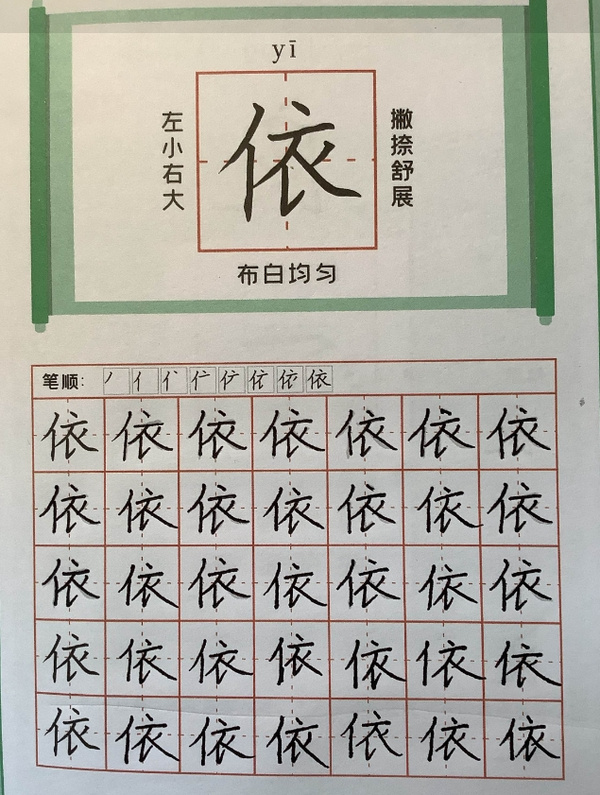 yī
左小右大
依
撇捺舒展
布白均匀
笔顺: 丿 亻 亻 依
依 依 依 依 依 依 依
依 依 依 依 依 依 依
依 依 依 依 依 依 依
依 依 依 依 依 依 依
依 依 依 依 依 依 依